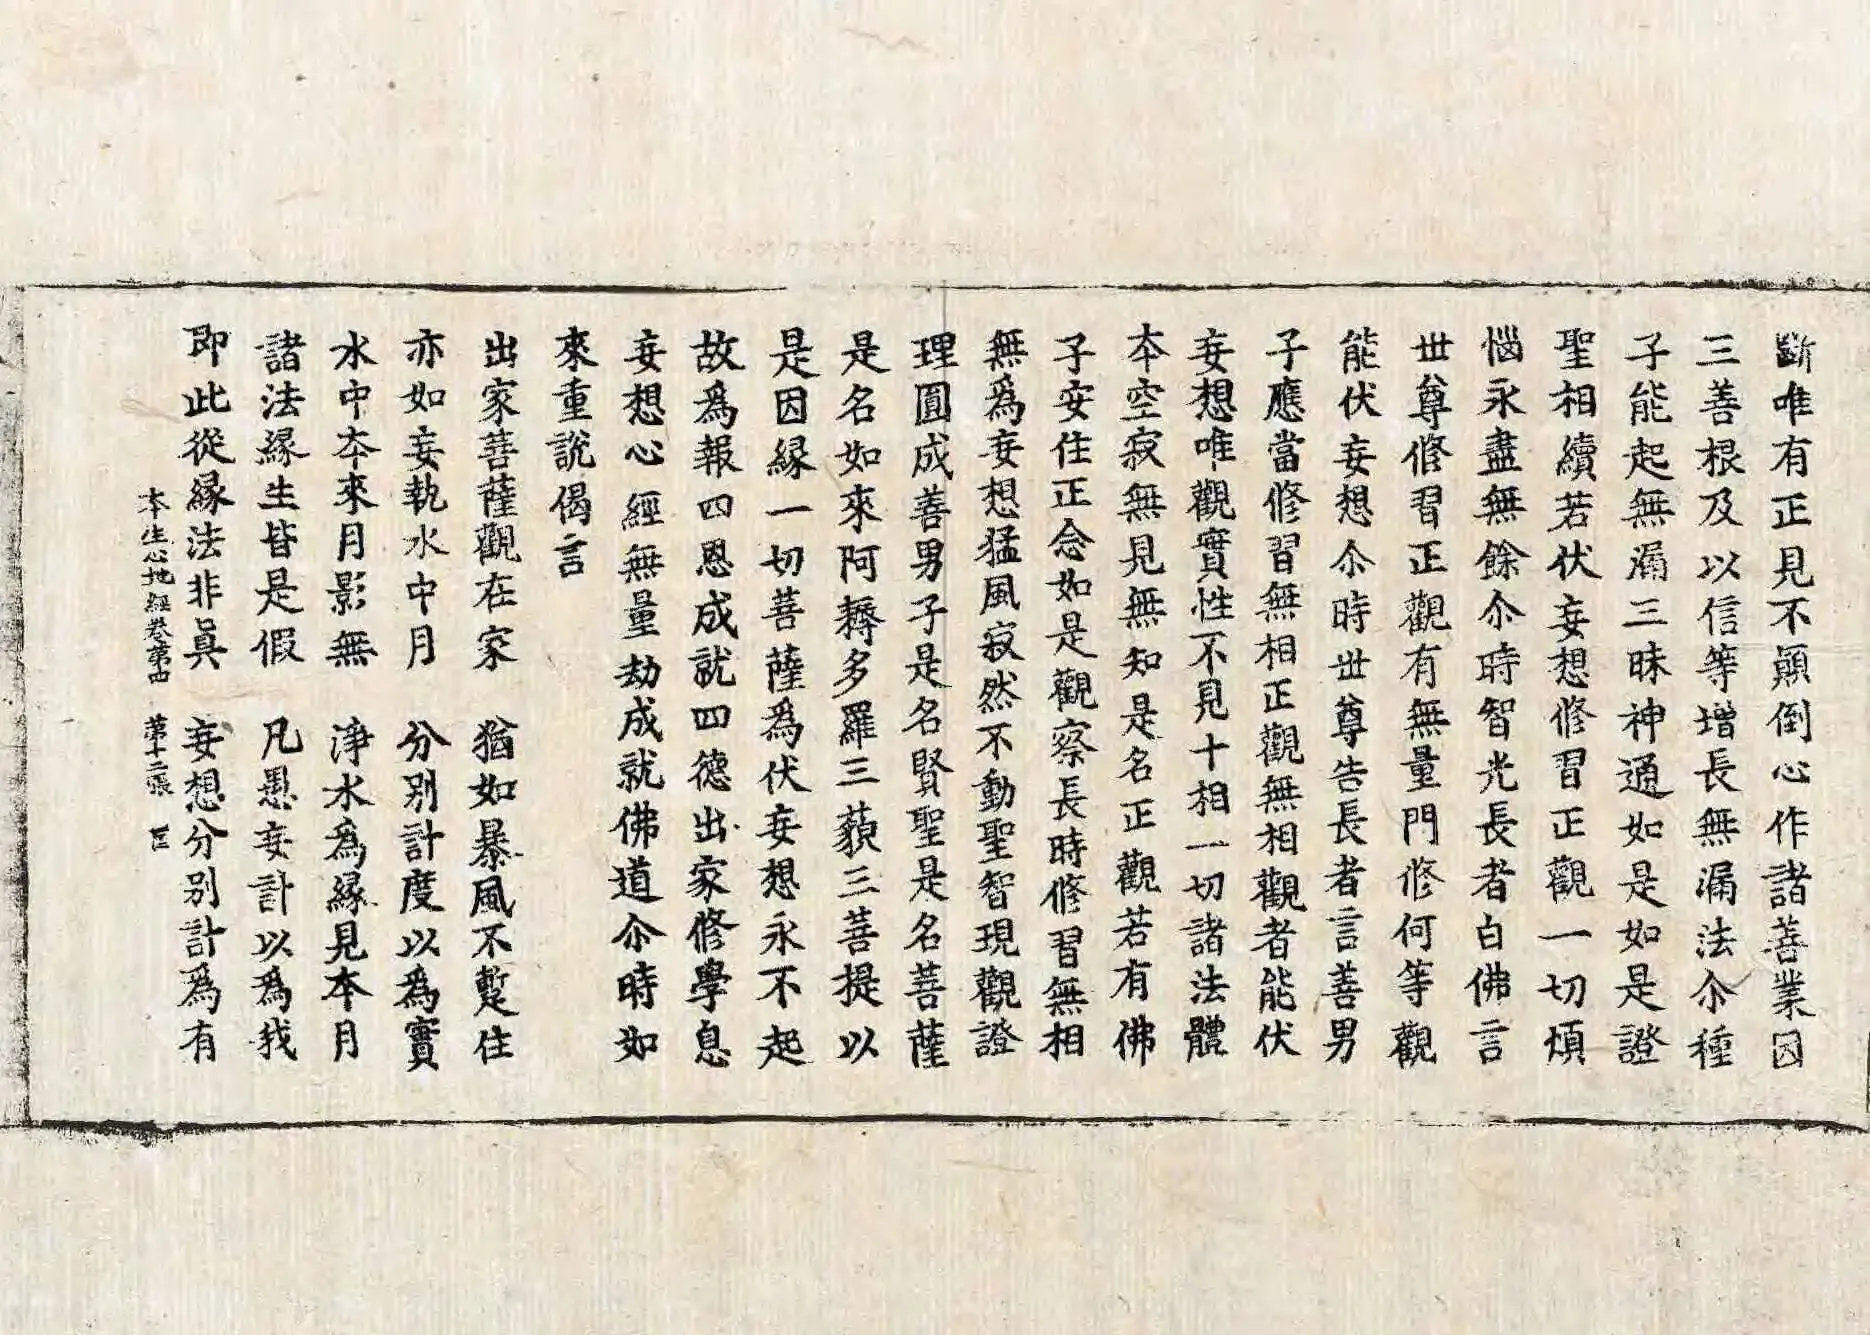 斷唯有正見不顚倒心作諸善業因
三善根及以信等增長無漏法尒種
子能起無漏三昧神通如是如是證
聖相續若伏妄想修習正觀一切煩
惱永盡無餘尒時智光長者白佛言
世尊修習正觀有無量門修何等觀
能伏妄想尒時世尊告長者言善男
子應當修習無相正觀無相觀者能伏
妄想唯觀實性不見十相一切諸法體
本空寂無見無知是名正觀若有佛
子安住正念如是觀察長時修習無相
無爲妄想猛風寂然不動聖智現觀證
理圓成善男子是名賢聖是名菩薩
是名如來阿耨多羅三藐三菩提以
是因緣一切菩薩爲伏妄想永不起
故爲報四恩成就四德出家修學息
妄想心經無量劫成就佛道尒時如
來重說偈言
出家菩薩觀在家　猶如暴風不蹔住
亦如妄執水中月　分別計度以爲實
水中本來月影無　淨水爲緣見本月
諸法緣生皆是假　凡愚妄計以爲我
即此從緣法非眞　妄想分別計爲有
本生心地經卷第四　第十二張　匡